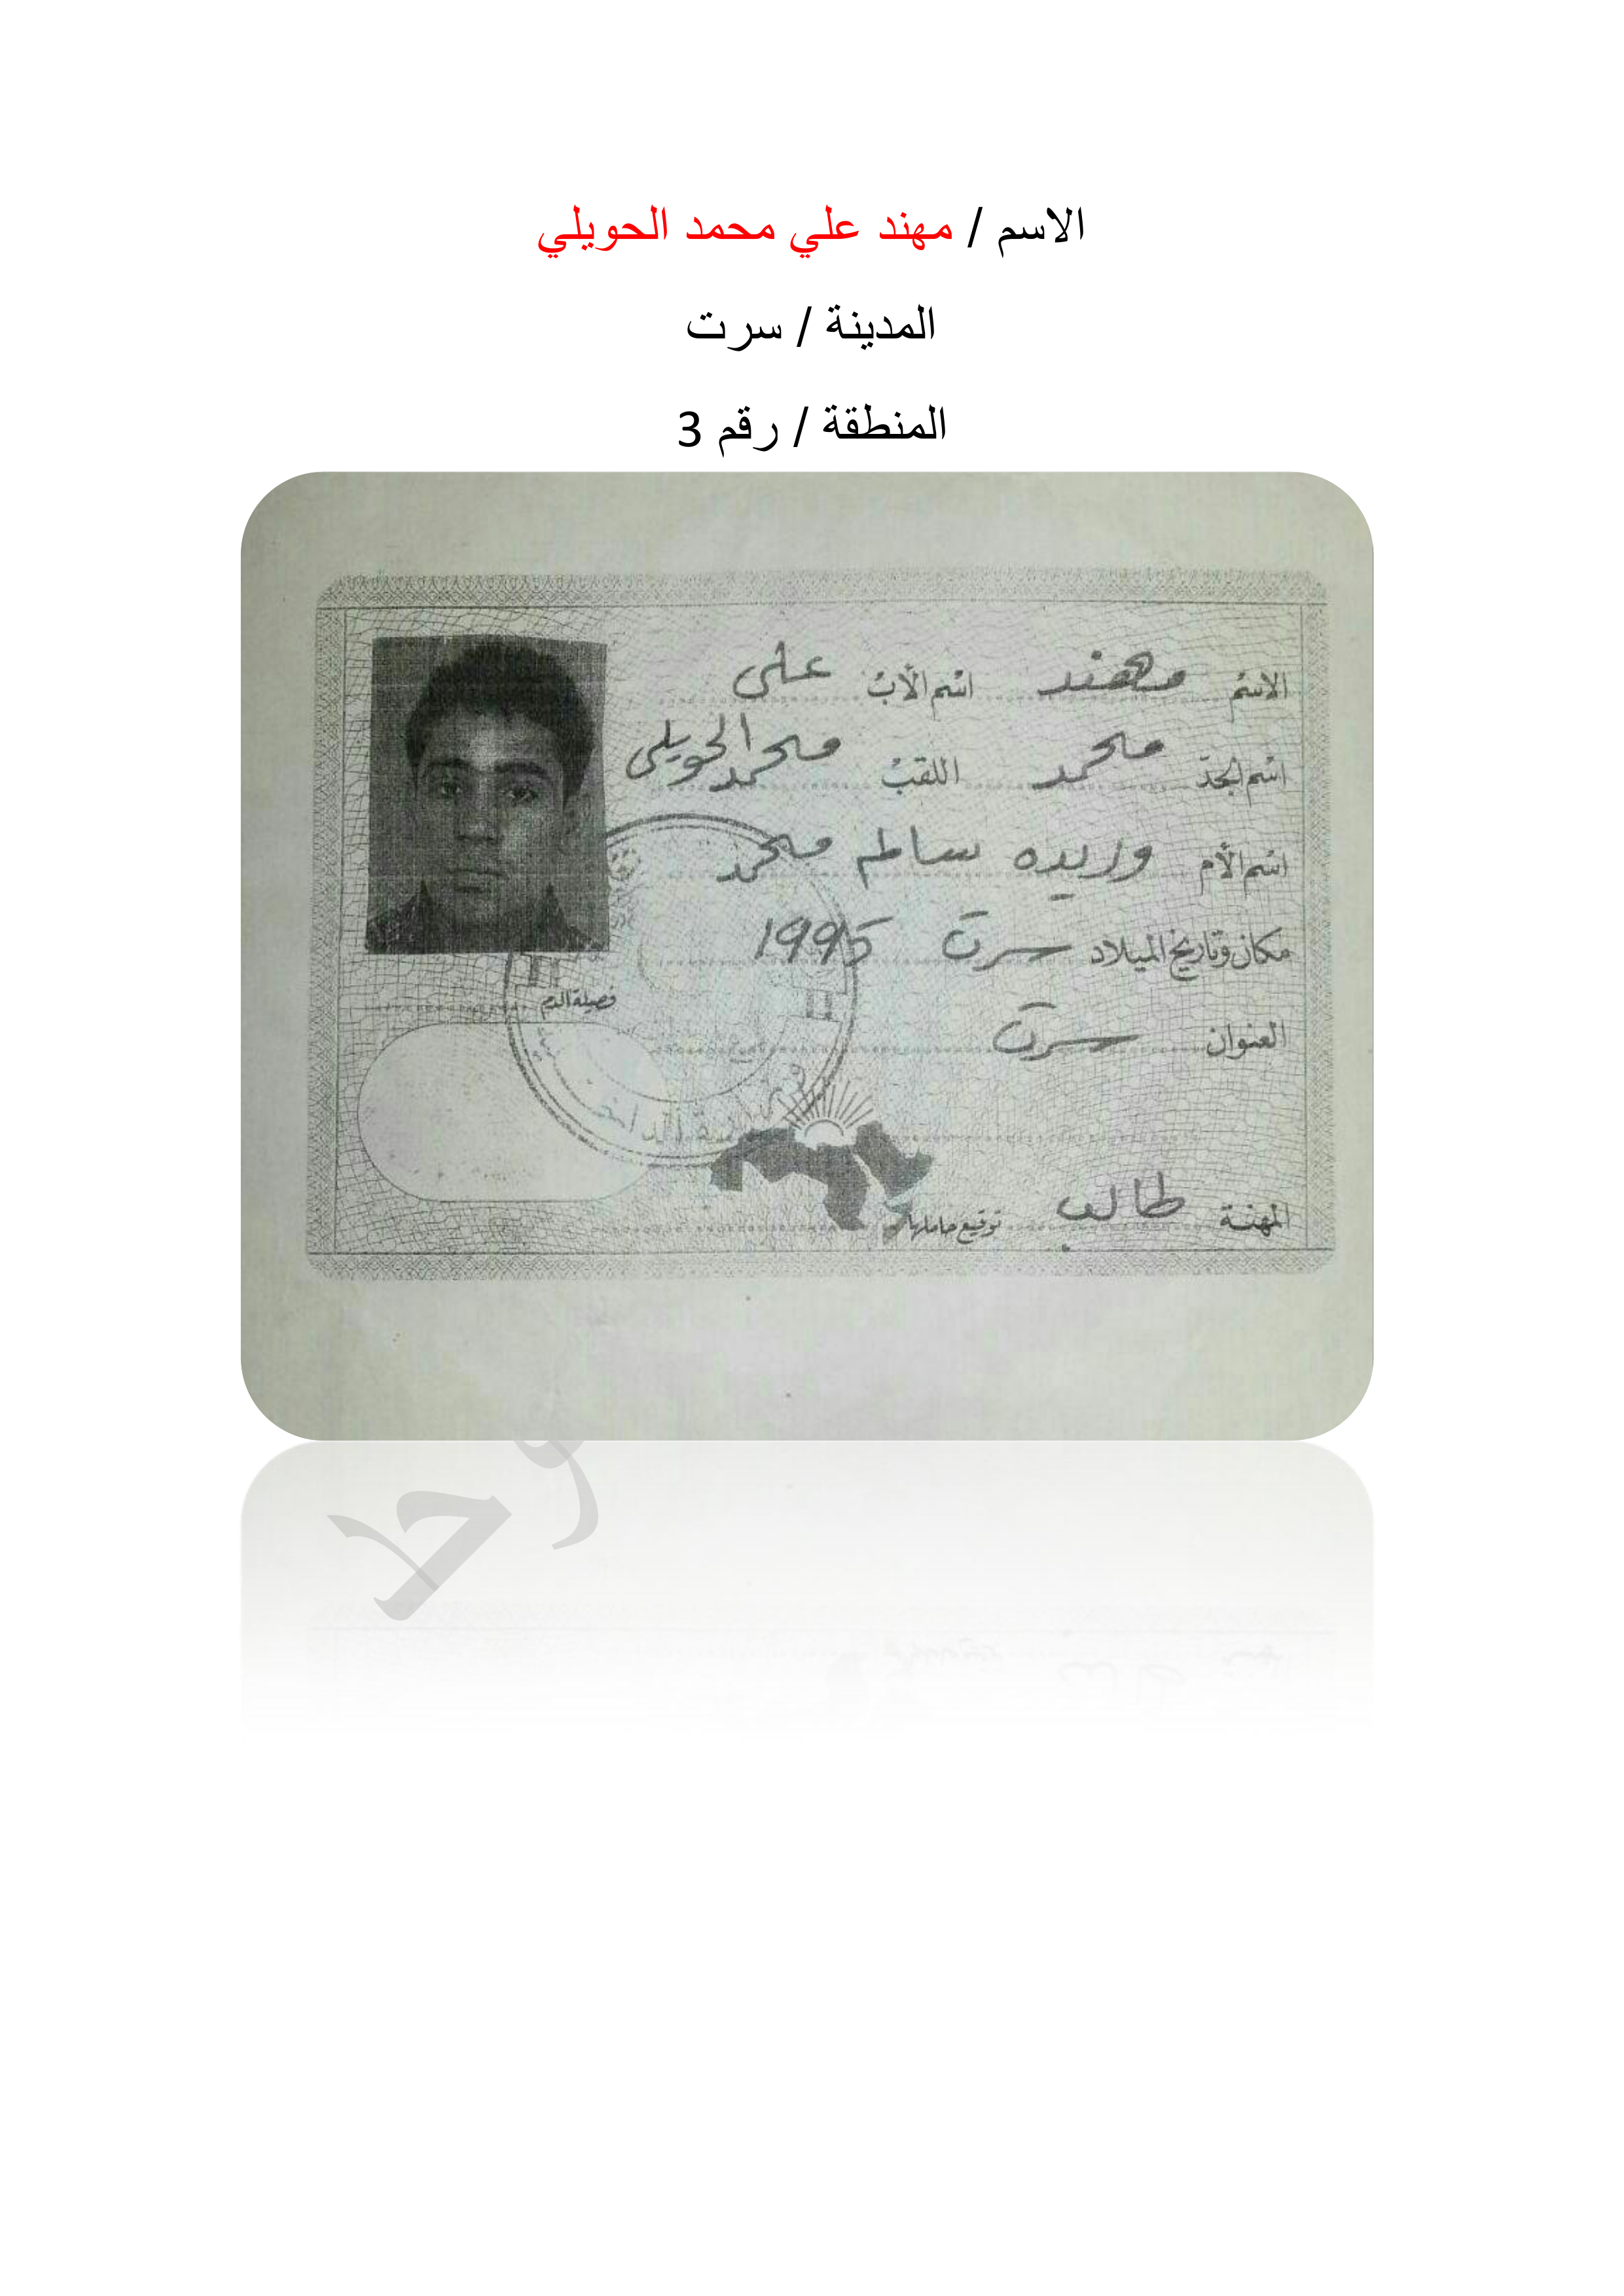 الاسم / مهند علي محمد الحويلي
المدينة / سرت
المنطقة / رقم 3
الاسم مهند اسم الأب على
اسم الجد محمد اللقب محمد الحويلى
اسم الأم وريده ساطم محمد
مكان وتاريخ الميلاد سرت 1995
فصيلة الدم
العنوان سرت
المهنة طالب توقيع حاملها